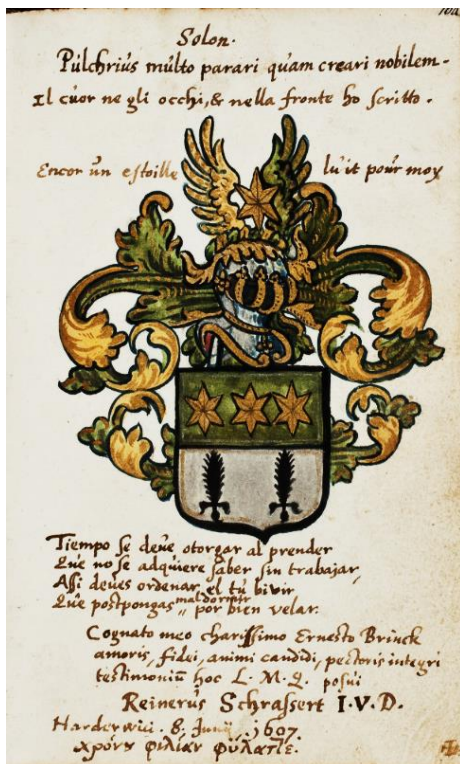 Solon.
Pulchrius multo parari quam creari nobilem.
Il cuor ne gli occhi, & nella fronte ho scritto.
Encor un estoille luit pour moy
Tiempo se deve otorgar al prender
Que no se adquiere saber sin trabajar,
Assi deves ordenar el tu bivir
Que postpongas mal dormir por bien velar.
Cognato meo charissimo Ernesto Brinck
amoris, fidei, animi candidi, pectoris integri
testimoniũ hoc L. M. Q. posui
Reinerus Schrassert I. V. D.
Harderwici. 8. Junij. 1607.
φιλίαν φύλαττε.